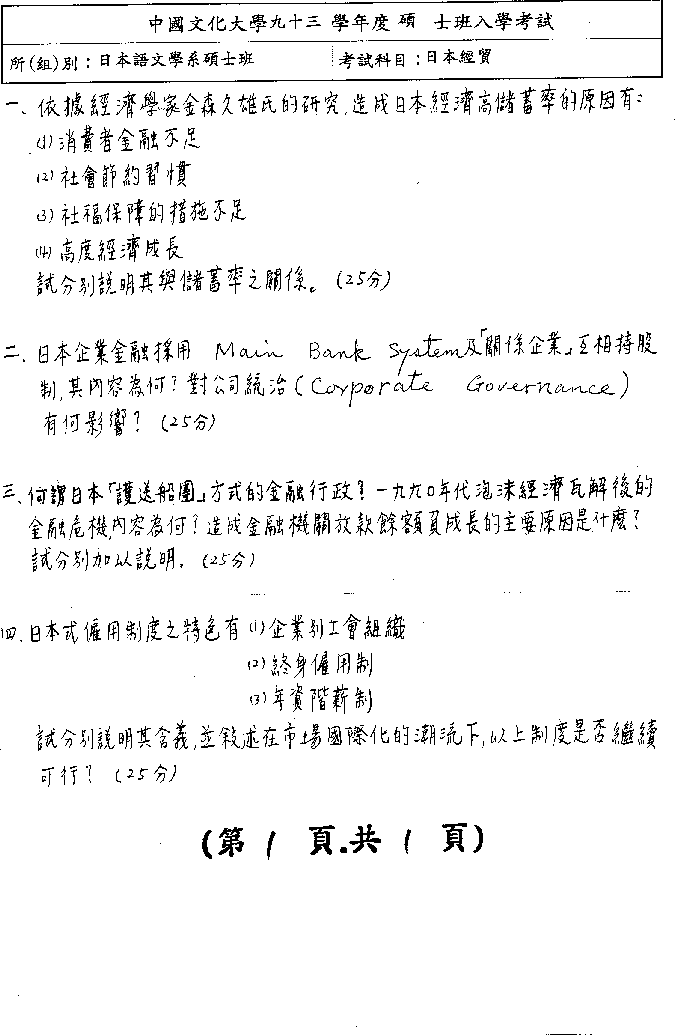 中國文化大學九十三 學年度 碩 士班入學考試
所(組)別：日本語文學系碩士班 考試科目：日本經貿
一、依據經濟學家金森久雄氏的研究，造成日本經濟高儲蓄率的原因有：
(1) 消費者金融不足
(2) 社會節約習慣
(3) 社福保障的措施不足
(4) 高度經濟成長
試分別說明其與儲蓄率之關係。(25分)
二、日本企業金融採用 Main Bank System及「關係企業」互相持股
制，其內容為何？對公司統治(Corporate Governance)
有何影響？(25分)
三、何謂日本「護送船團」方式的金融行政？一九九〇年代泡沫經濟瓦解後的
金融危機，內容為何？造成金融機關放款餘額負成長的主要原因是什麼？
試分別加以說明。(25分)
四、日本式僱用制度之特色有 (1) 企業別工會組織
(2) 終身僱用制
(3) 年資階薪制
試分別說明其含義，並敍述在市場國際化的潮流下，以上制度是否繼續
可行？(25分)
(第 1 頁．共 1 頁)